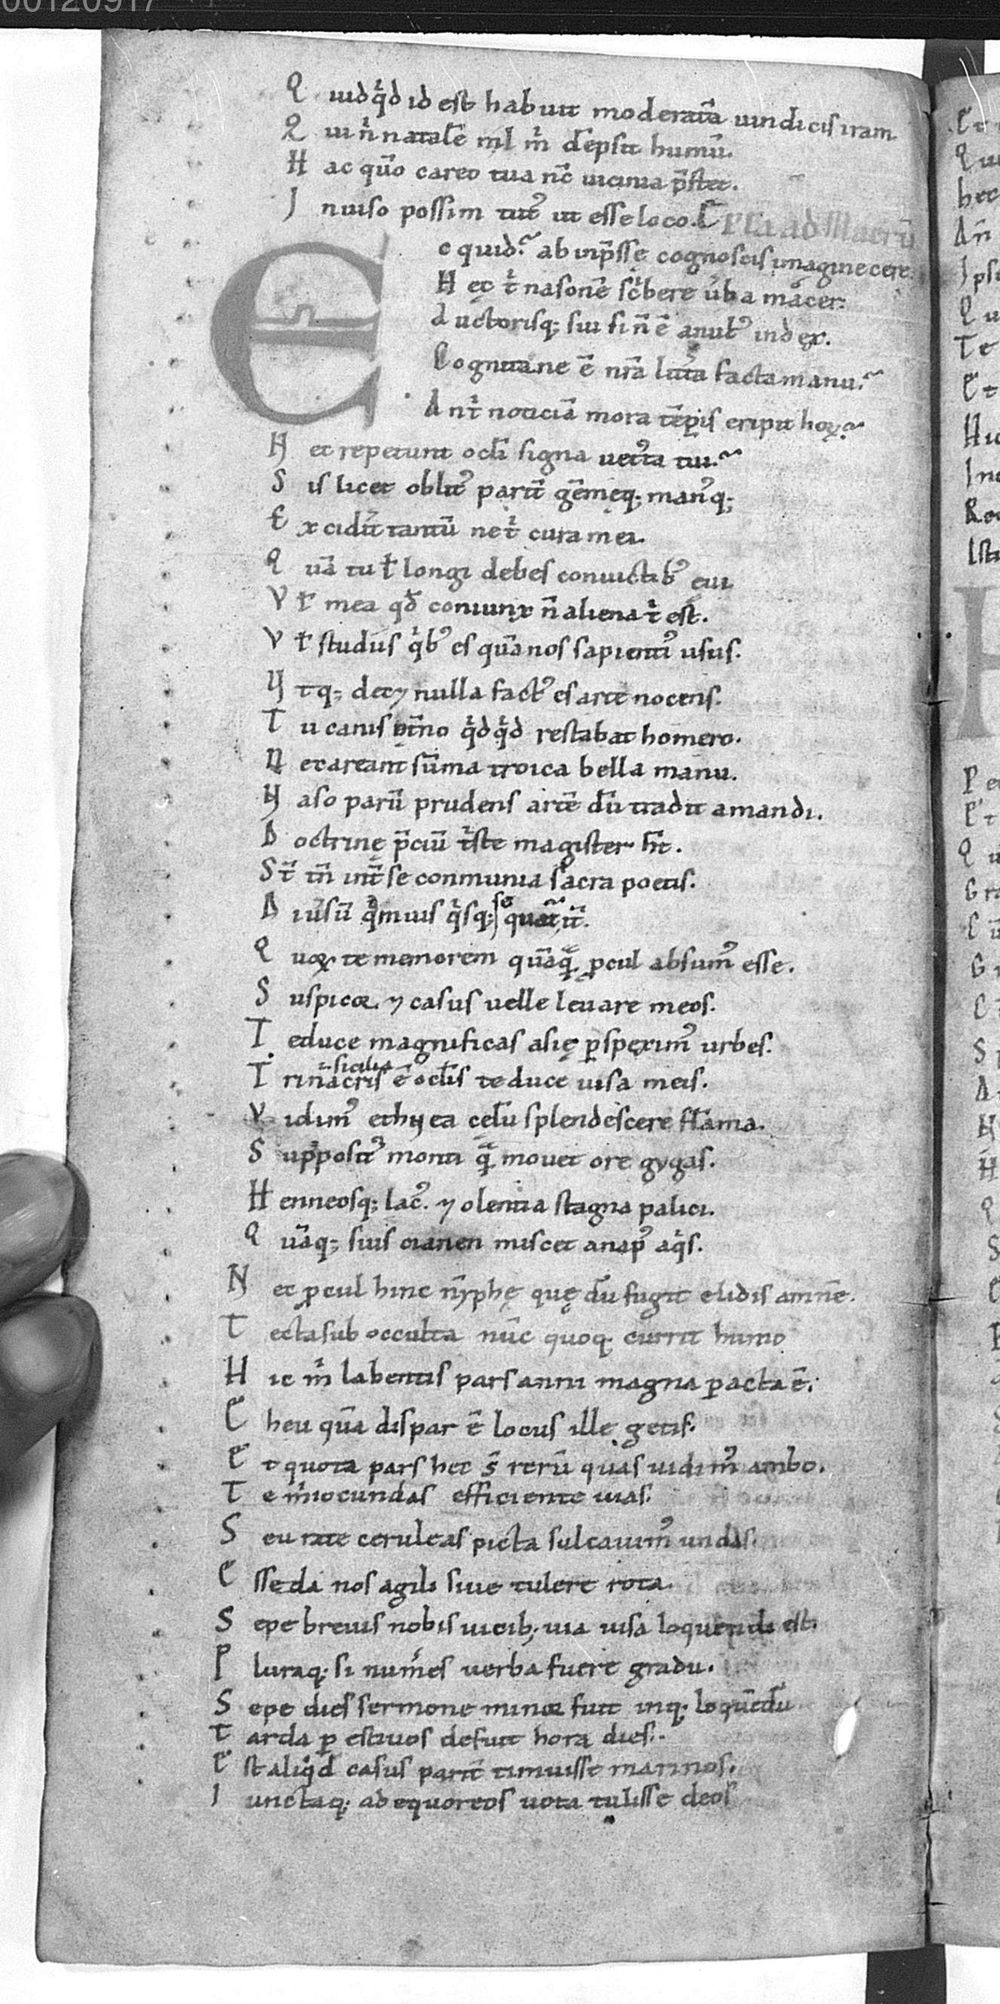 00120917
Q uidq̇d id est habuit moderata̅ uindicis iram
Q ui n̅ natale̅ ml̅ m̅ de̅psit humu̅.
H ac quo̅ careo tua nc̅ uicinia p̅stet.
I nuiso possim tut᷒ ut esse loco. Epl̅a ad Macru̅
E c quid. ab inp̅sse̜ cognoscis imagine cere.
H ec t̅ nasone̅ sc̅bere u̅ba macer.
A uctorisq; sui si n̅ e̅ anul᷒ index.
C ognitane e̅ nr̅a litt̅a facta manu.
A n t̅ noticia̅ mora te̅pis eripit hoꝝ.
N ec repetunt ocl̅i signa uet᷒ta tui.
S is licet oblit᷒ parit̅ ge̅meq; man᷒q;
E x cidit̅ tantu̅ ne t̅ cura mei.
Q ua̅ tu ł longi debes conuictib᷒ eui
V ł mea qd̅ coniunx n̅ aliena t̅ est.
V ł studiis q̇b᷒ es qua̅ nos sapienti᷒ usus.
U tq; decet nulla fact᷒ es arte nocens.
T u canis et̅no q̇dq̇d restabat homero.
N e careant su̅ma troica bella manu.
N aso paru̅ prudens arte̅ du̅ tradit amandi.
D octrine̜ p̅ciu̅ t̅ste magister ht̅.
S t̅ tn̅ int̅ se conmunia sacra poetis.
D iu̅su̅ q̅muis q̇sq;
Q uoꝝ te memorem qua̅q̅ ꝓcul absum᷒ esse.
S uspicoꝛ. ⁊ casus uelle leuare meos.
T e duce magnificas asie̜ ꝑspexim᷒ urbes.
sicilia
T rinacris e̅ ocl̅is te duce uisa meis.
V idim᷒ ethnea celu̅ splendescere fla̅ma.
S upposit᷒ monti q̅ mouet ore gygas.
H enneosq; lac᷒. ⁊ olentia stagna palici.
Q ua̅q; suis cianen miscet anap᷒ aq̇s.
N ec ꝓcul hinc ny̅phe̜ que̜ du̅ fugit elidis amne̅.
T ecta sub occulta nu̅c quoq; currit humo
H ic m̅ labentis pars anni magna ꝑacta e̅.
E heu qua̅ dispar e̅ locus ille getis.
E t quota pars hec s̅ reru̅ quas uidim᷒ ambo.
T e m̅ iocundas efficiente uias.
S eu rate ceruleas picta sulcauim᷒ undas.
E sseda nos agili siue tulere rota.
S epe breuis nobis uicib; uia uisa loquendi est.
P luraq; si num̅es uerba fuere gradu.
S epe dies sermone minoꝛ fuit inq; loque̅du̅
T arda ꝑ estiuos defuit hora dies.
E st aliq̇d casus parit̅ timuisse marinos.
I unctaq; ad equoreos uota tulisse deos